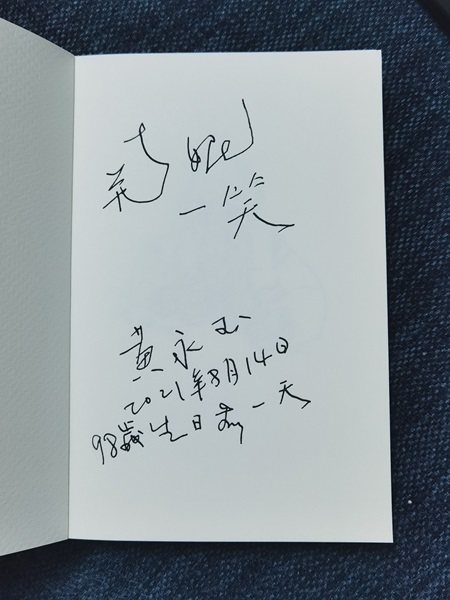 一笑
黄永玉
2021年8月14日
98歲生日前一天